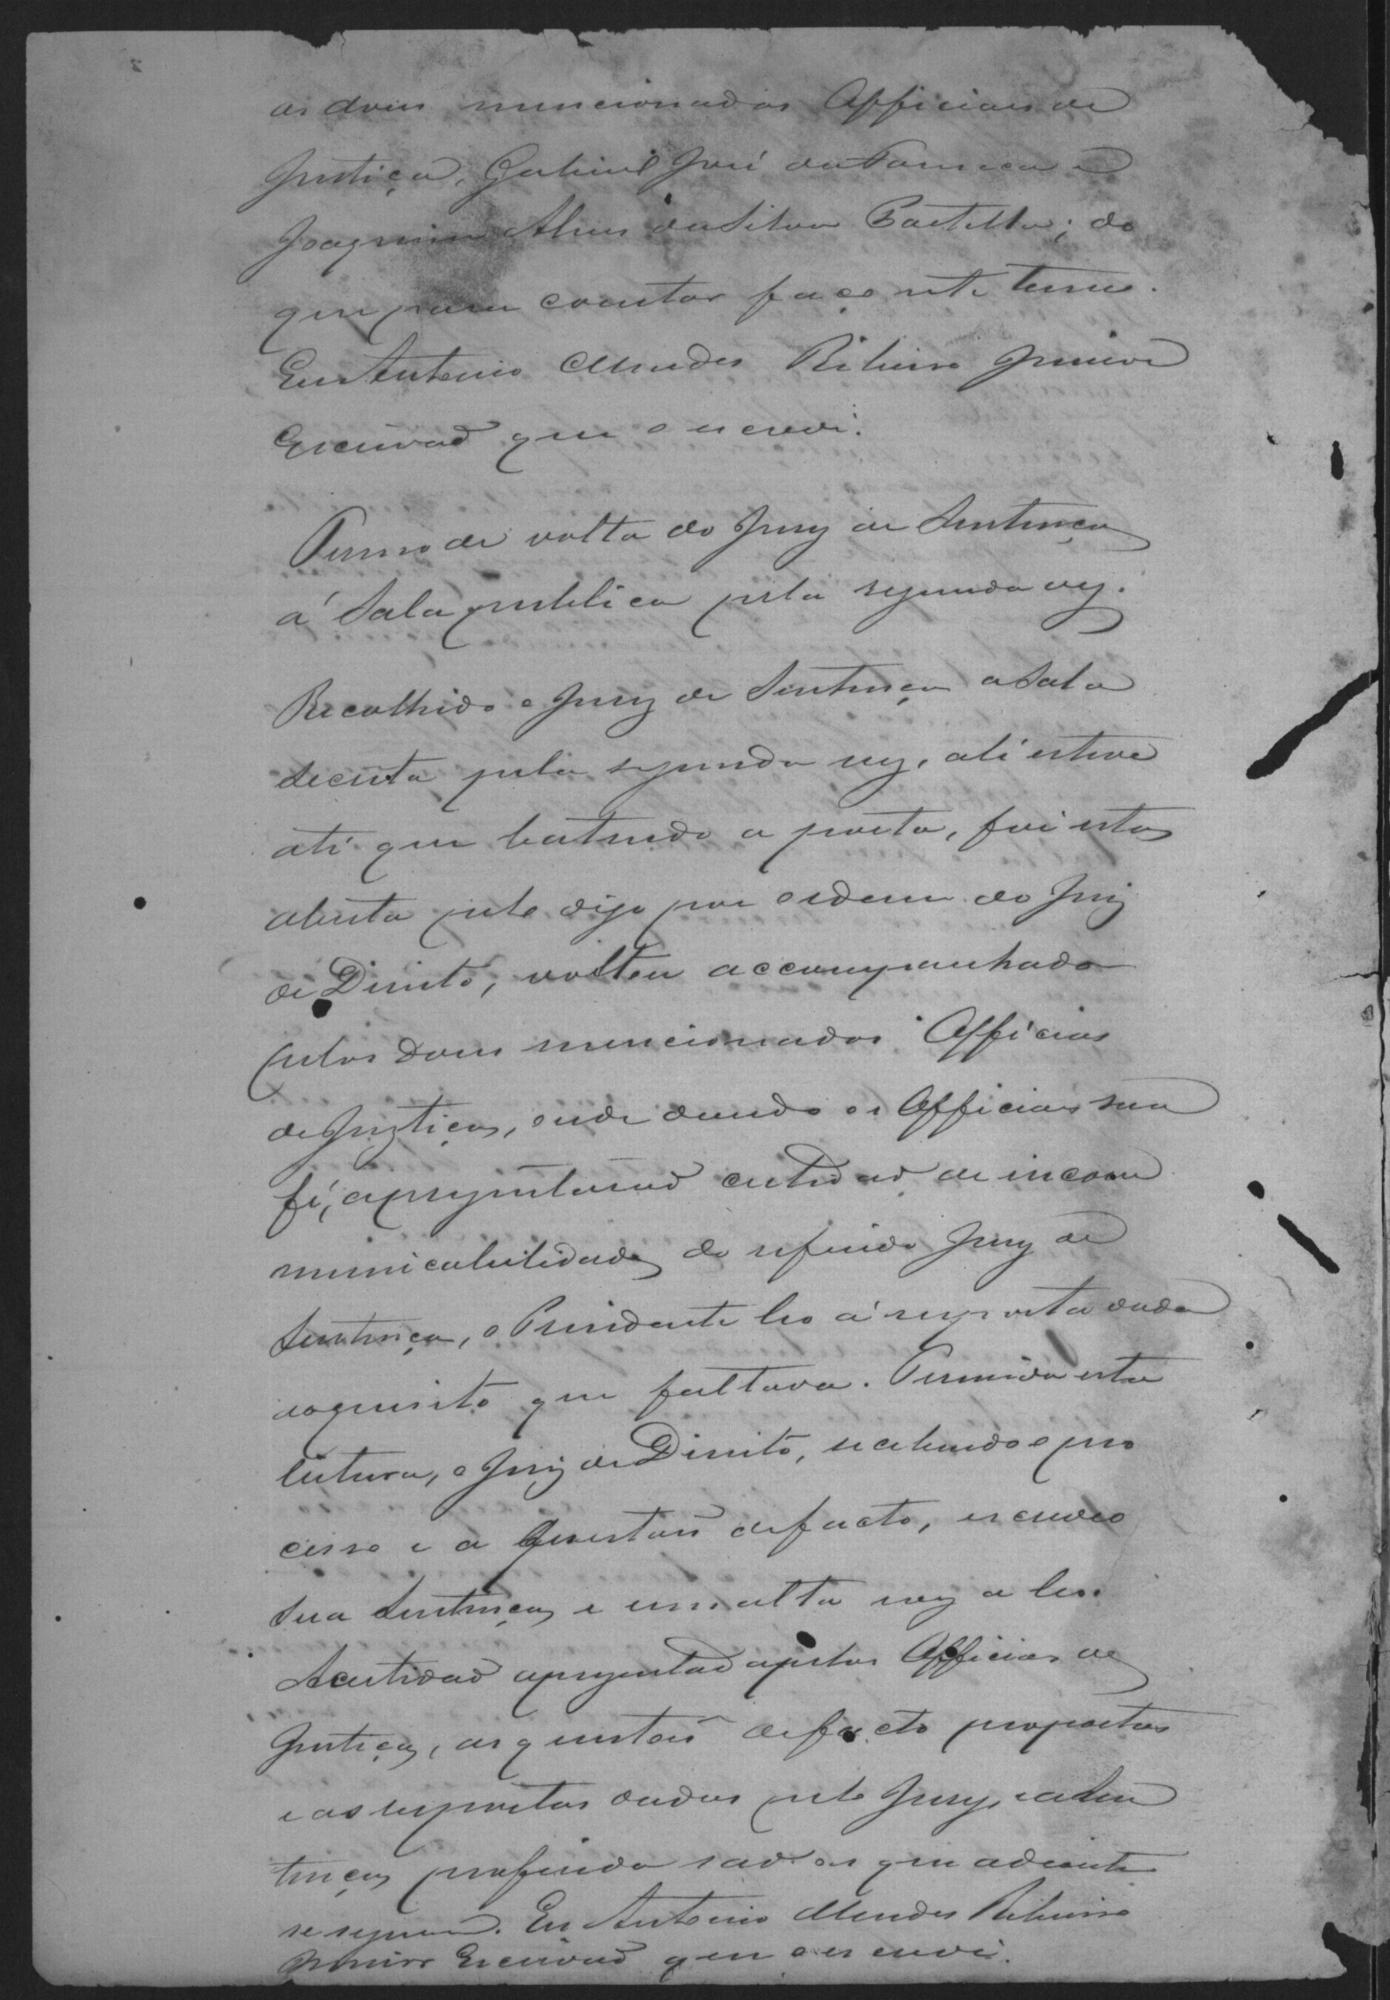 os dous mencionados Officiaes de
Justiça, Gabriel José da Fonseca e
Joaquim Alves da Silva Castello; do
que para constar faço este termo.
Eu Antonio Mendes Ribeiro Junior
Escrivaõ que o escrevi.
Termo de volta do Jury de Sentença
á Sala publica pela segunda vez.
Recolhido o Jury de Sentença a Sala
secreta pela segunda vez, ali esteve
até que batendo a porta, foi esta
aberta pelo digo por ordem do Juiz
de Direito, voltou accompanhado
pelos dous mencionados Officiaes
de Justiça, onde dando os Officiaes sua
fé, apresentaraõ certidaõ de incom
municabilidade do referido Jury de
Sentença, o Presidente leo a resposta dada
ao quisito que faltava. Terminada esta
leitura, o Juiz de Direito, recebendo o pro
cesso e a Questaõ de facto, escreveo
sua Sentença e em alta voz a leu.
A certidaõ apresentada pelos Officiaes de
Justiça, as questões de facto propostas
e as respostas dadas pelo Jury, e a Sen
tença proferida saõ as que adiante
se seguem. Eu Antonio Mendes Ribeiro
Junior Escrivaõ que o escrevi.